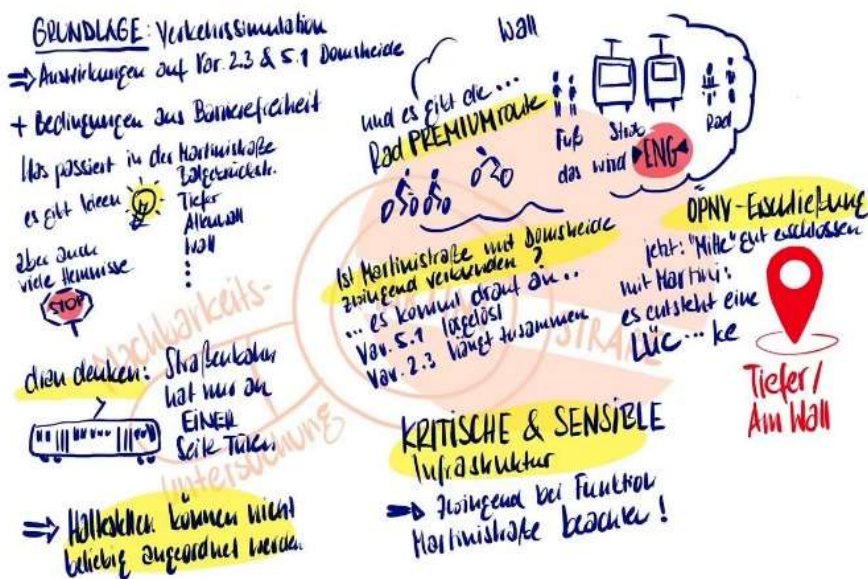 GRUNDLAGE: Verkehrssimulation
⇒ Auswirkungen auf Var. 2.3 & 5.1 Domsheide
+ Bedingungen aus Barrierefreiheit
Was passiert in der Martinistraße
Balgebrückstr.
Tiefer
Altenwall
Wall
⋮
es gibt Ideen
aber auch
viele Hemnisse
STOP
dran denken: Straßenbahn
hat nur an
EINER
Seite Türen
⇒ Haltestellen können nicht
beliebig angeordnet werden
Wall
und es gibt die ...
Rad PREMIUMroute
Fuß Strab Rad
das wird ENG
Ist Martinistraße mit Domsheide
zwingend verbunden?
... es kommt drauf an ...
Var. 5.1 losgelöst
Var. 2.3 hängt zusammen
KRITISCHE & SENSIBLE
Infrastruktur
➡ zwingend bei Funktion
Martinistraße beachten!
ÖPNV-Erschließung
jetzt: "Mitte" gut erschlossen
mit Martini:
es entsteht eine
LÜC ... ke
Tiefer/
Am Wall
Machbarkeits-
untersuchung
MARTINI
STRAßE